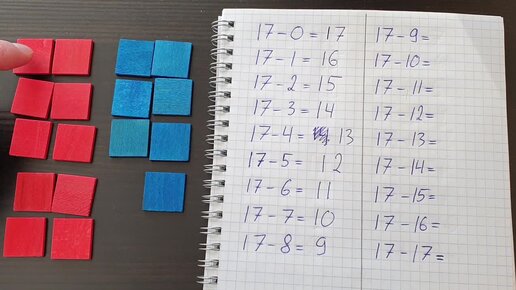 17-0=17
17-1=16
17-2=15
17-3=14
17-4= 13
17-5= 12
17-6= 11
17-7=10
17-8=9
17-9=
17-10=
17-11=
17-12=
17-13=
17-14=
17-15=
17-16=
17-17=